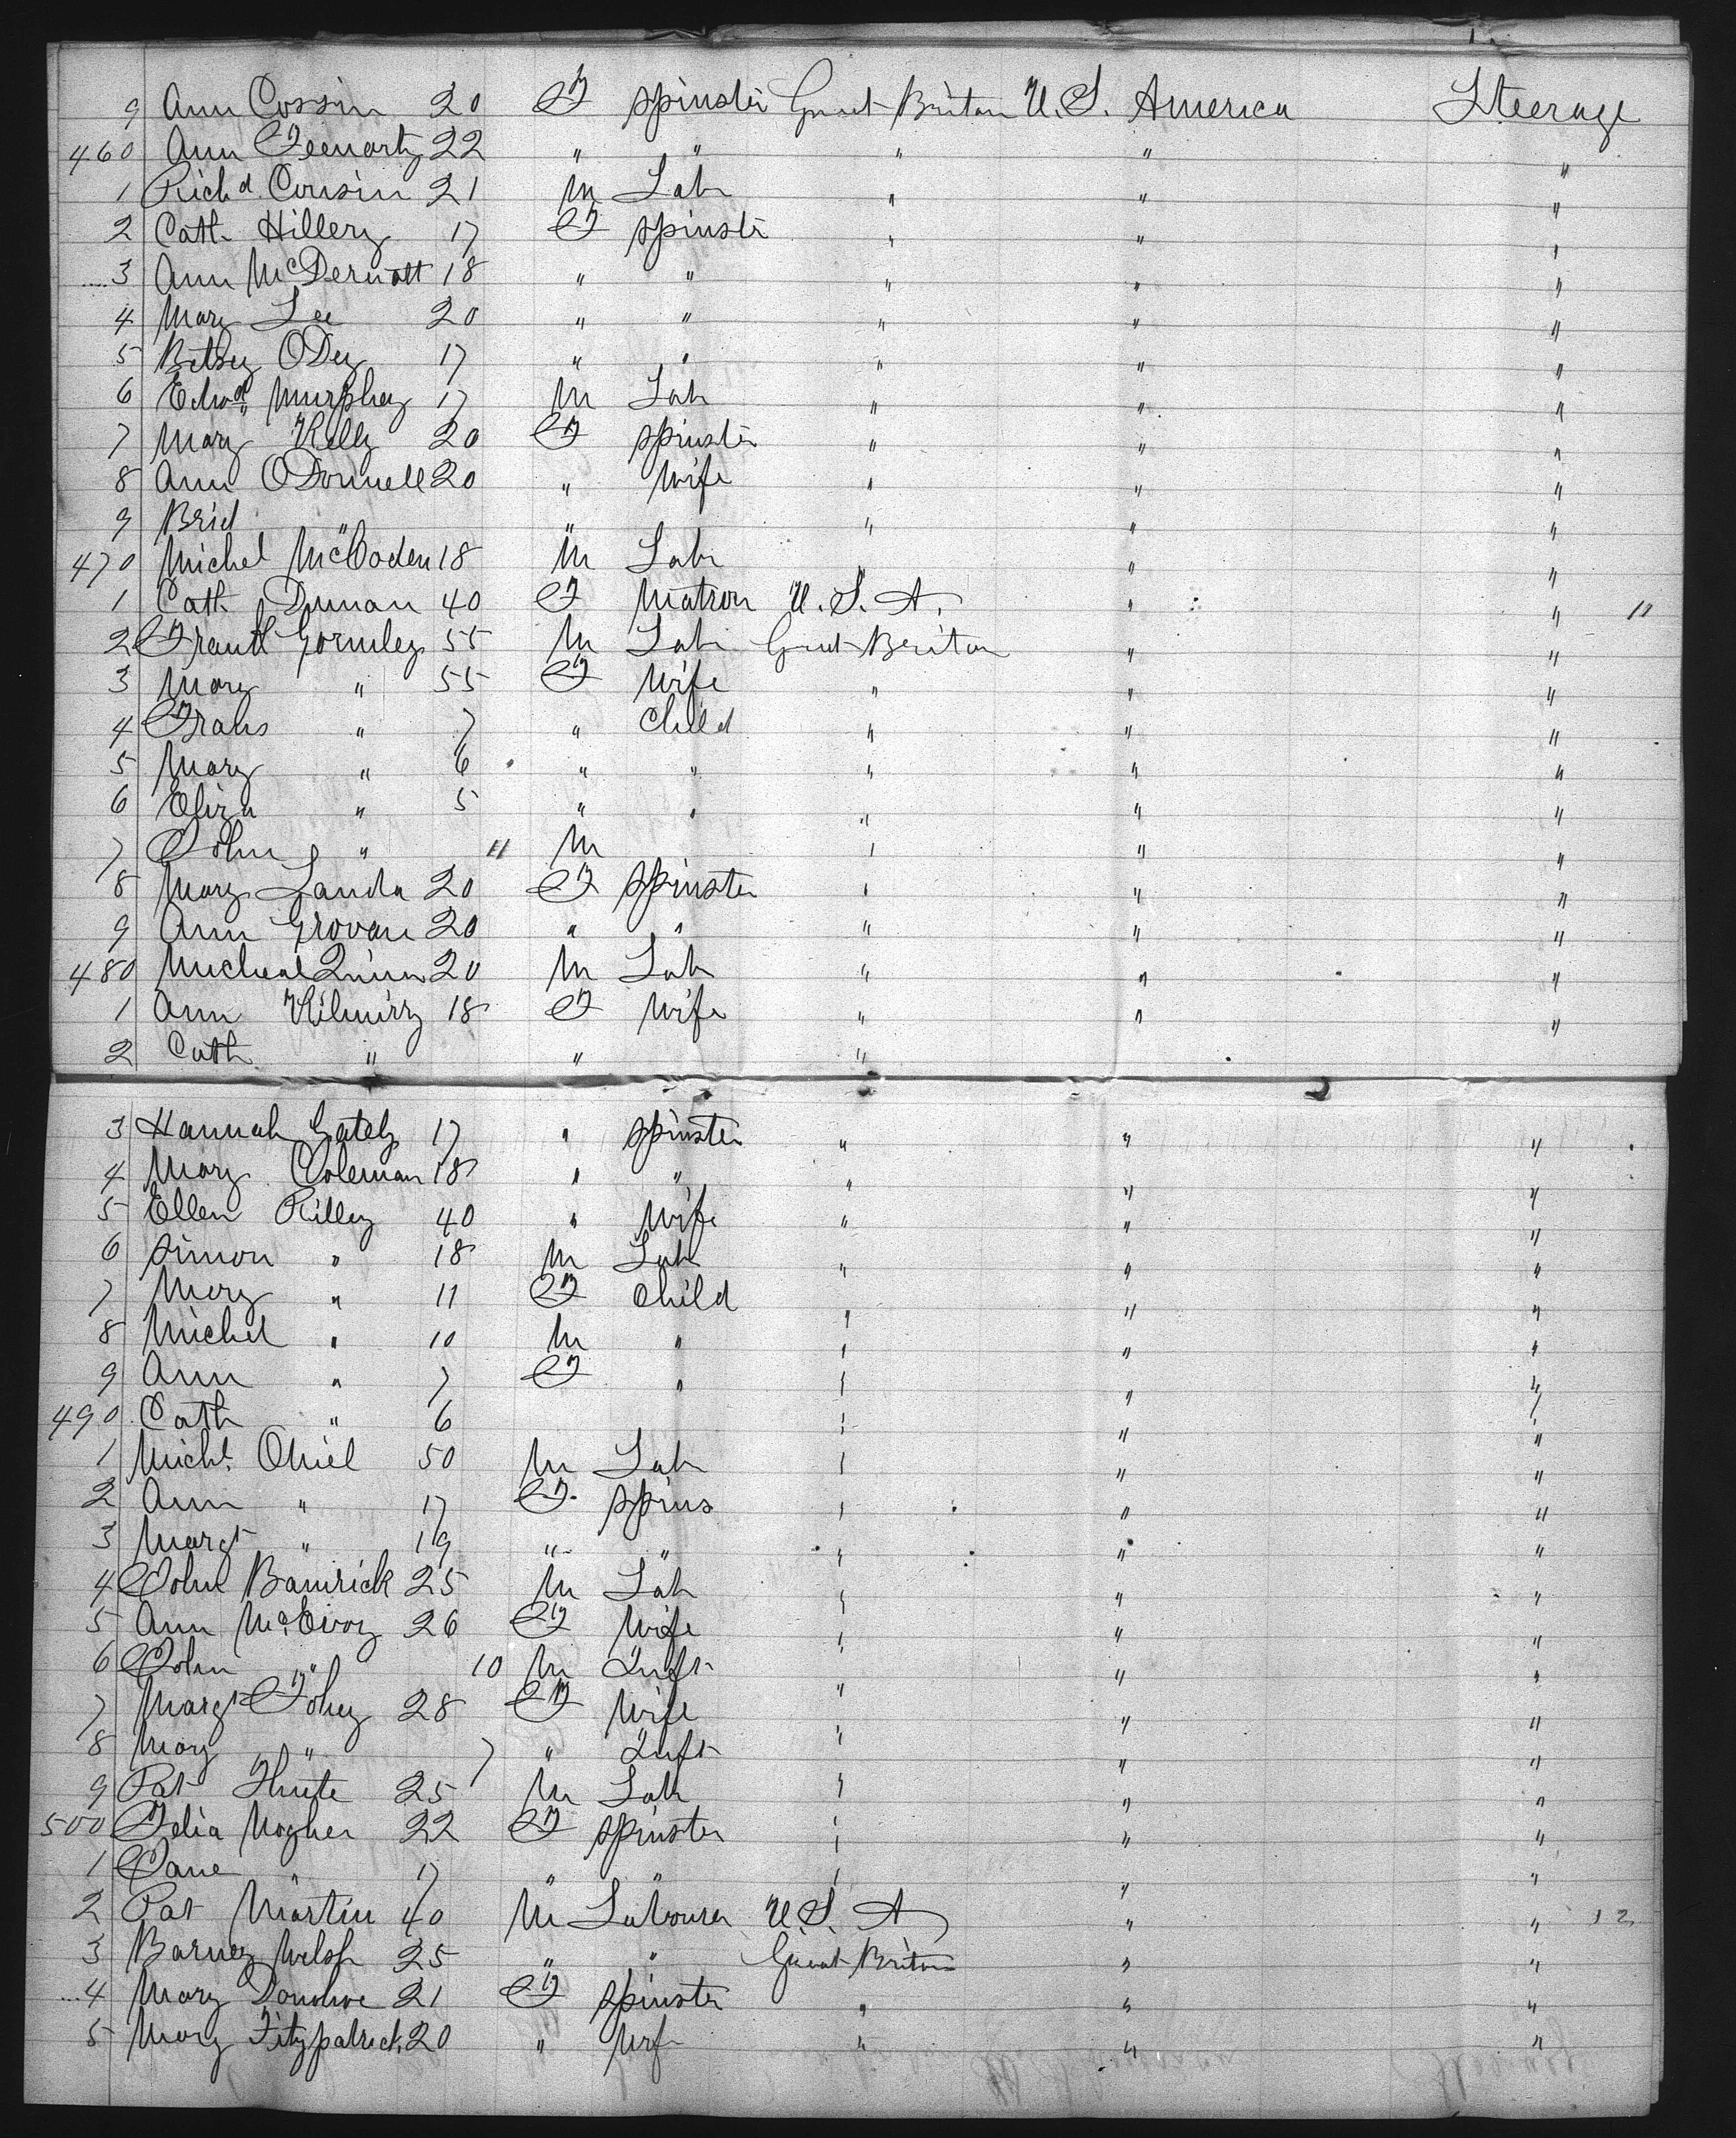 9 Ann Cossin 20 F Spinster Great Britan U.S. America Steerage
460 Ann 22 " " " " "
1 Richd. Cousin 21 M Lab " " "
2 Cath Hillery 17 F Spinstr " " "
3 Ann McDermott 18 " " " " "
4 Mary Lee 20 " " " " "
5 Betsey ODey 17 " " " " "
6 Edwd Murphey 17 M Lab " " "
7 Mary Kelly 20 F Spinster " " "
8 Ann ODonnell 20 " Wife " " "
9 Brid " " " " "
470 Michel 18 M Lab " " "
1 Cath 40 F Matron U.S.A. " " 11
2 Gormley 55 M Lab Great Briton " "
3 Mary " 55 F Wife " " "
4 Frans " 7 " Child " " "
5 Mary " 6 " " " " "
6 Eliza " 5 " " " " "
7 John " 11 M " " "
8 Mary Landa 20 F Spinster " " "
9 Ann Grovan 20 " " " " "
480 Micheal Quinn 20 M Lab " " "
1 Ann 18 F Wife " " "
2 Cath " " "
3 Hannah Gately 17 " Spinster " " "
4 Mary Coleman 18 " " " " "
5 Ellen Rilley 40 " Wife " " "
6 Simon " 18 M Lab " " "
7 Mary " 11 F Child " " "
8 Michel " 10 M " " " "
9 Ann " 7 F " " " "
490 Cath " 6 " " "
1 Michl. ONiel 50 M Lab " " "
2 Ann " 17 F Spins " " "
3 Margt " 19 " " " " "
4 John Banrick 25 M Lab " " "
5 Ann McEvoy 26 F Wife " " "
6 John " 10 M Inft " " "
7 Margt Fohey 28 F Wife " " "
8 Mary " 7 " Inft " " "
9 Pat 25 M Lab " " "
500 Magher 22 F Spinster " " "
1 Jane " 17 " " " " "
2 Pat Martin 40 M Labourer U.S. A " " 12
3 Barney Welsh 25 " " Great Briton " "
4 Mary Donohoe 21 F Spinster " " "
5 Mary Fitzpatrick 20 " Wif " " "